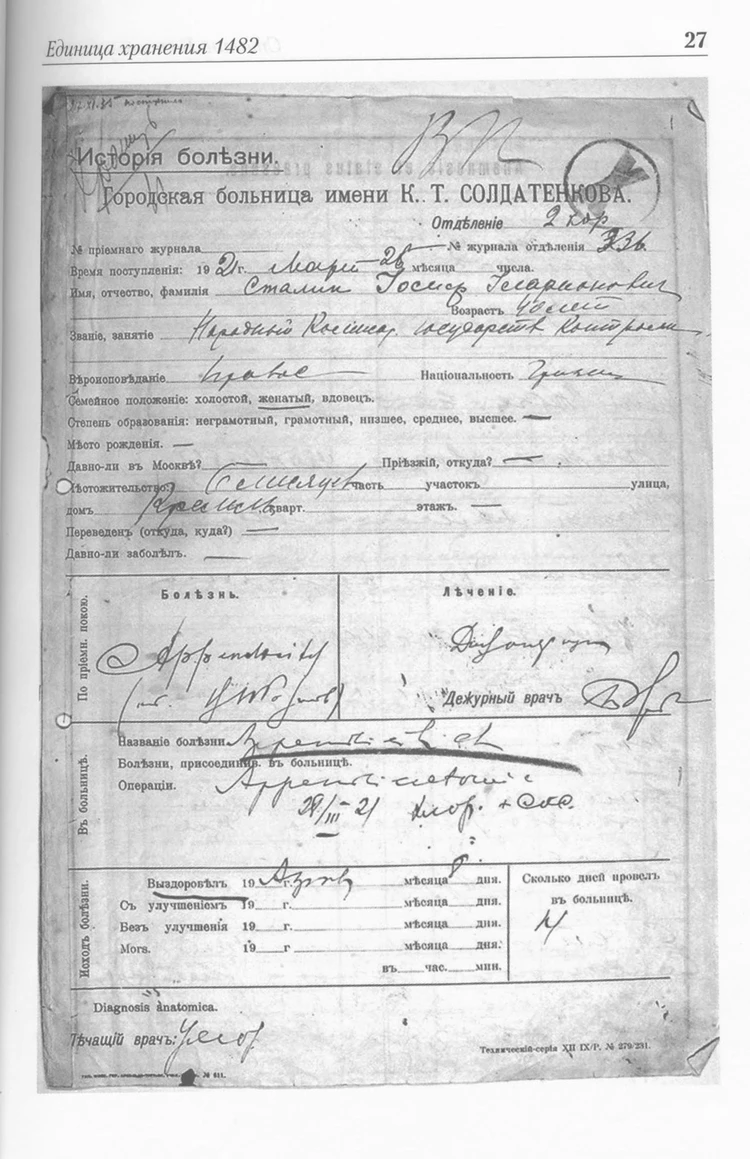 Единица хранения 1482
27
Исторія болѣзни.
Городская больница имени К. Т. СОЛДАТЕНКОВА.
Отдѣленіе 2 кор
№ пріемнаго журнала № журнала отдѣленія 336
Время поступленія: 1921 г. Март 25 мѣсяца числа.
Имя, отчество, фамилія Сталин Іосиф Иларионович
Возрастъ 40 лет
Званіе, занятіе Народный Комиссар государств контроля
Вѣроисповѣданіе правос Національность Грузин
Семейное положеніе: холостой, женатый, вдовецъ.
Степень образованія: неграмотный, грамотный, низшее, среднее, высшее. —
Мѣсто рожденія. —
Давно-ли въ Москвѣ? — Пріѣзжій, откуда? —
Мѣстожительство: часть участокъ улица,
домъ Кремль кварт. этажъ. —
Переведен (откуда, куда?) —
Давно-ли заболѣлъ. —
Болѣзнь. Лѣченіе.
По пріемн. покою.
Appendicit
Дежурный врачъ
Въ больницѣ.
Названіе болѣзни Appendicit
Болѣзни, присоедин. въ больницѣ.
Операціи. Appendicectomia
28/III 21 Хлор.
Исходъ болѣзни.
Выздоровѣлъ 19 г. мѣсяца 8 дня.
Съ улучшеніемъ 19 г. мѣсяца дня.
Безъ улучшенія 19 г. мѣсяца дня.
Могв. 19 г мѣсяца дня.
въ час. мин.
Сколько дней провелъ
въ больницѣ.
14
Diagnosis anatomica.
Лѣчащій врачъ:
Техническій-серія XII IX/Р. № 279/291.
№ 611.